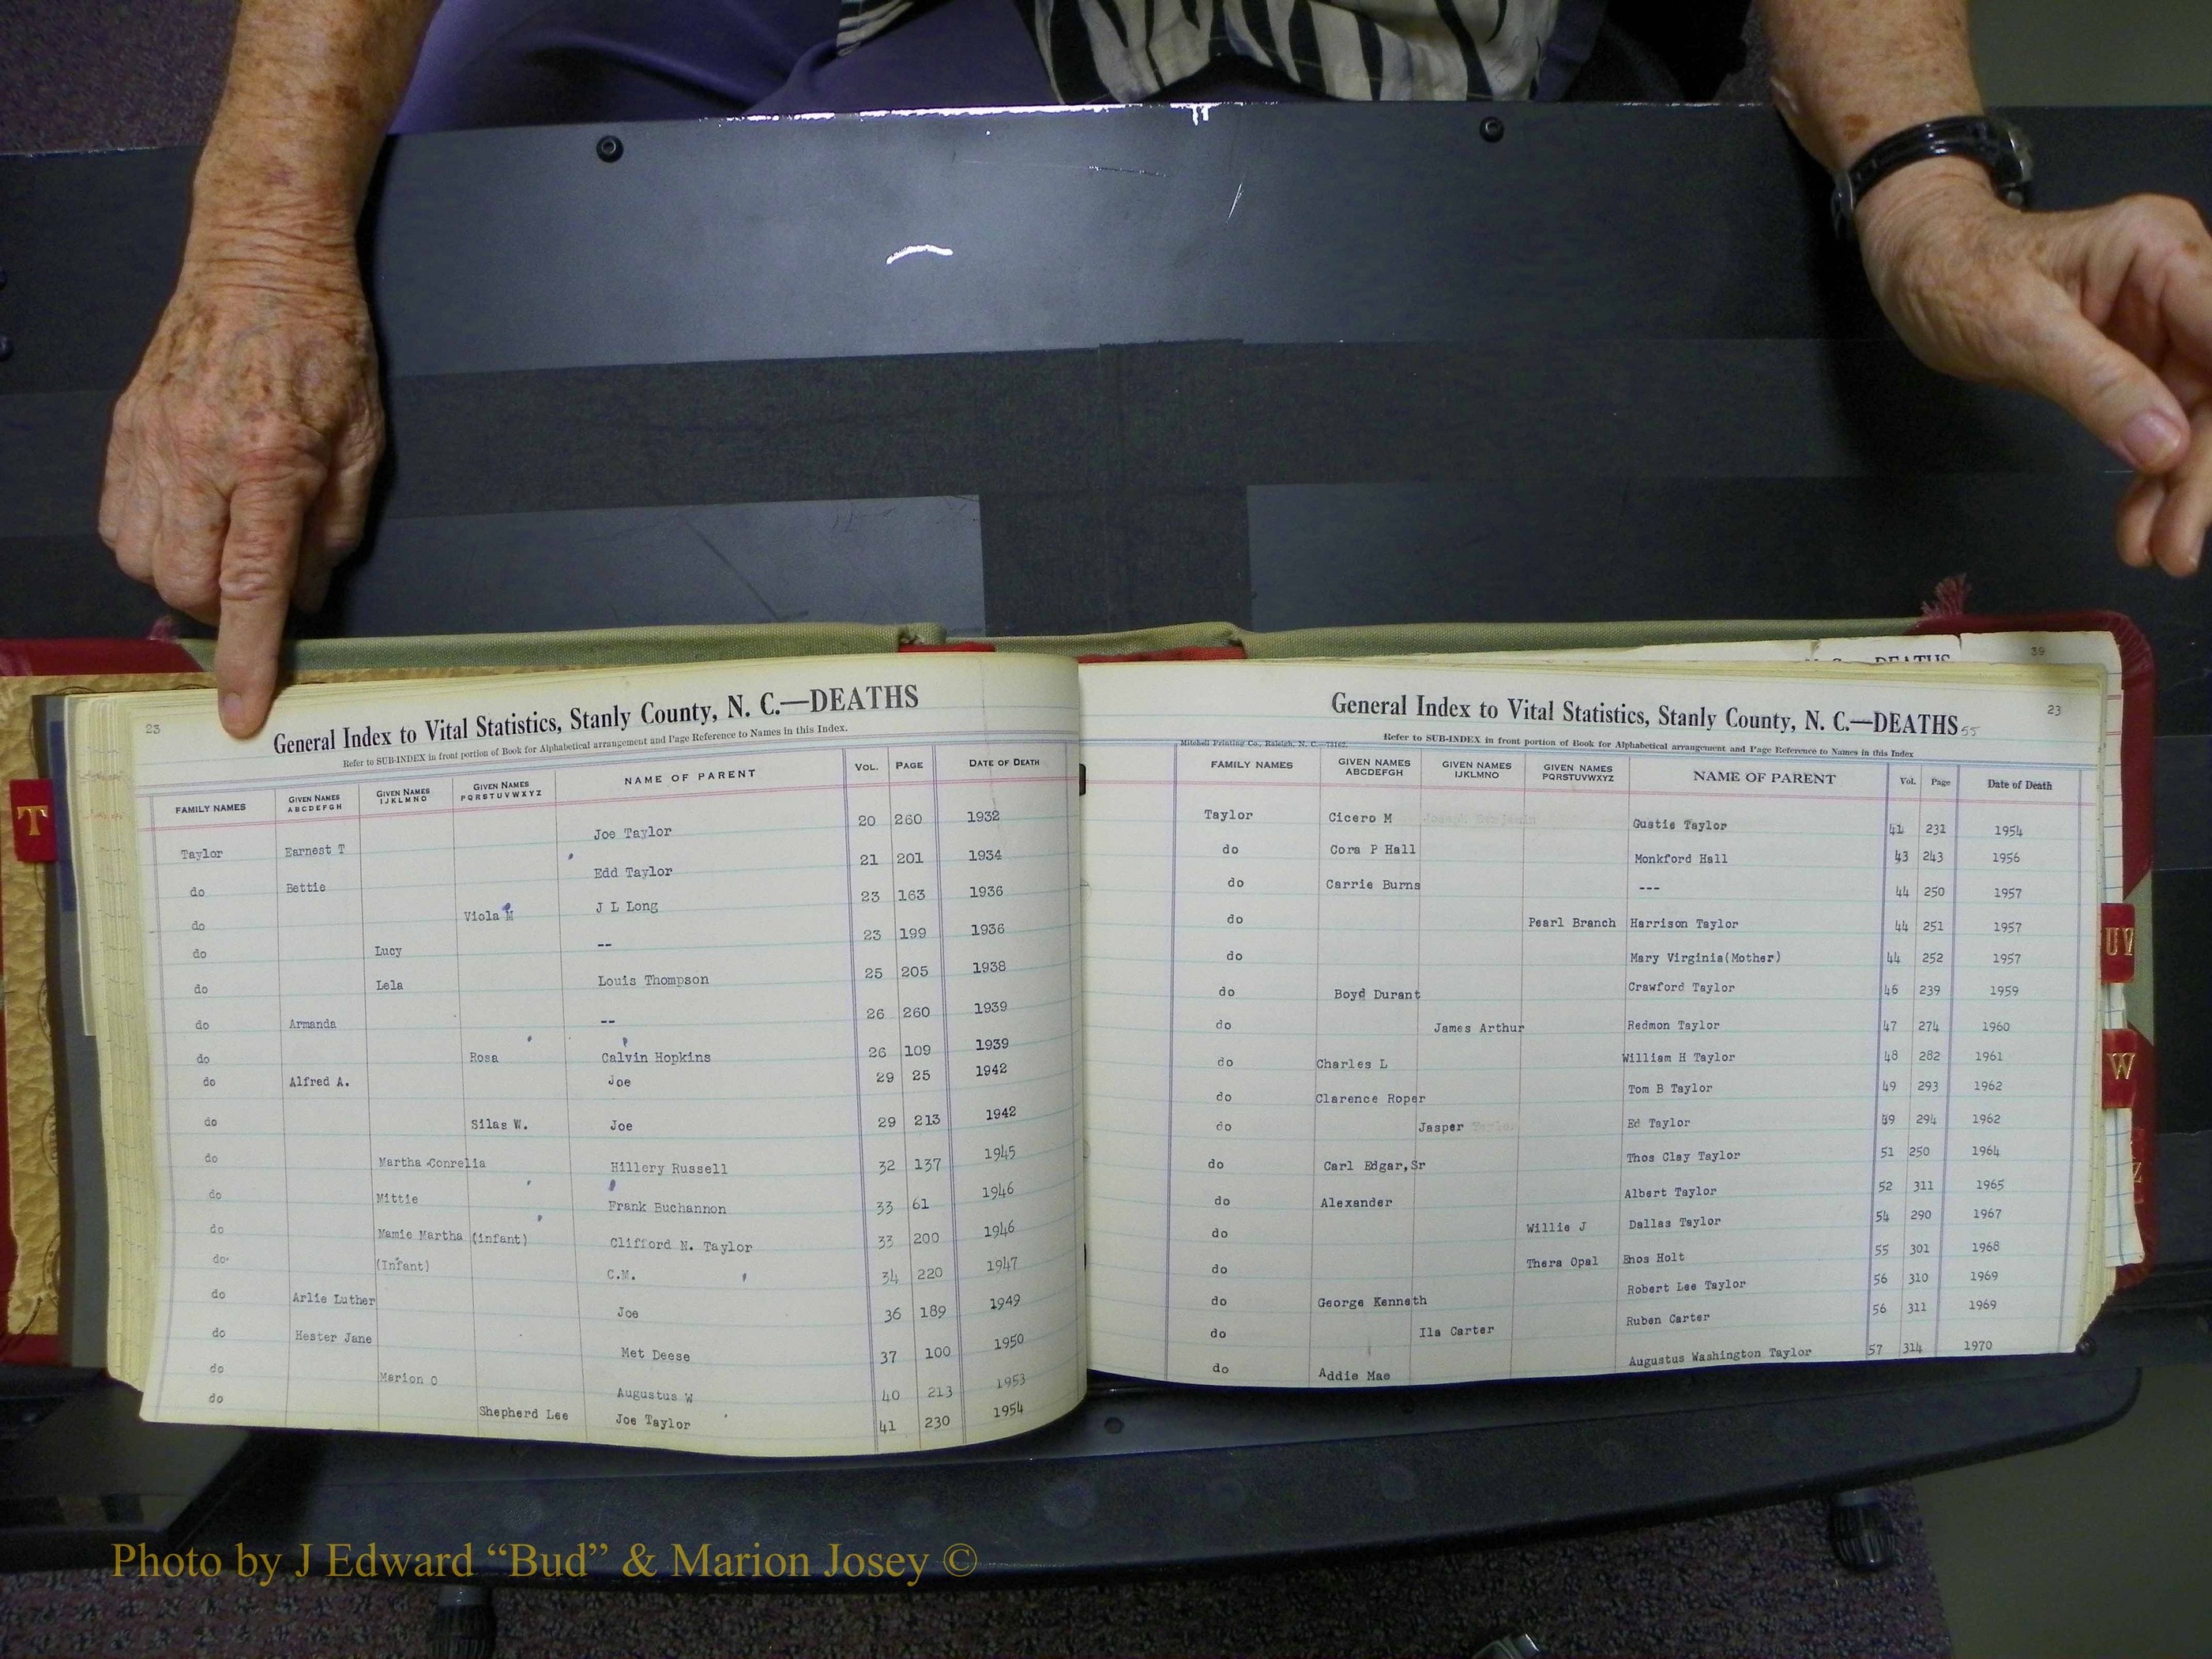 39
T
23
General Index to Vital Statistics, Stanly County, N. C.—DEATHS
Refer to SUB-INDEX in front portion of Book for Alphabetical arrangement and Page Reference to Names in this Index.
FAMILY NAMES GIVEN NAMES ABCDEFGH GIVEN NAMES IJKLMNO GIVEN NAMES PQRSTUVWXYZ NAME OF PARENT VOL. PAGE DATE OF DEATH
Taylor Earnest T Joe Taylor 20 260 1932
do Bettie Edd Taylor 21 201 1934
do Viola M J L Long 23 163 1936
do Lucy -- 23 199 1936
do Lela Louis Thompson 25 205 1938
do Armanda -- 26 260 1939
do Rosa Calvin Hopkins 26 109 1939
do Alfred A. Joe 29 25 1942
do Silas W. Joe 29 213 1942
do Martha Conrelia Hillery Russell 32 137 1945
do Mittie Frank Buchannon 33 61 1946
do Mamie Martha (infant) Clifford N. Taylor 33 200 1946
do (Infant) C.M. 34 220 1947
do Arlie Luther Joe 36 189 1949
do Hester Jane Met Deese 37 100 1950
do Marion O Augustus W 40 213 1953
do Shepherd Lee Joe Taylor 41 230 1954
23
General Index to Vital Statistics, Stanly County, N. C.—DEATHS 55
Mitchell Printing Co., Raleigh, N. C.
Refer to SUB-INDEX in front portion of Book for Alphabetical arrangement and Page Reference to Names in this Index
FAMILY NAMES GIVEN NAMES ABCDEFGH GIVEN NAMES IJKLMNO GIVEN NAMES PQRSTUVWXYZ NAME OF PARENT Vol. Page Date of Death
Taylor Cicero M Gustie Taylor 41 231 1954
do Cora P Hall Monkford Hall 43 243 1956
do Carrie Burns --- 44 250 1957
do Pearl Branch Harrison Taylor 44 251 1957
do Mary Virginia(Mother) 44 252 1957
do Boyd Durant Crawford Taylor 46 239 1959
do James Arthur Redmon Taylor 47 274 1960
do Charles L William H Taylor 48 282 1961
do Clarence Roper Tom B Taylor 49 293 1962
do Jasper Ed Taylor 49 294 1962
do Carl Edgar,Sr Thos Clay Taylor 51 250 1964
do Alexander Albert Taylor 52 311 1965
do Willie J Dallas Taylor 54 290 1967
do Thera Opal Enos Holt 55 301 1968
do George Kenneth Robert Lee Taylor 56 310 1969
do Ila Carter Ruben Carter 56 311 1969
do Addie Mae Augustus Washington Taylor 57 314 1970
UV
W
Z
Photo by J Edward “Bud” & Marion Josey ©